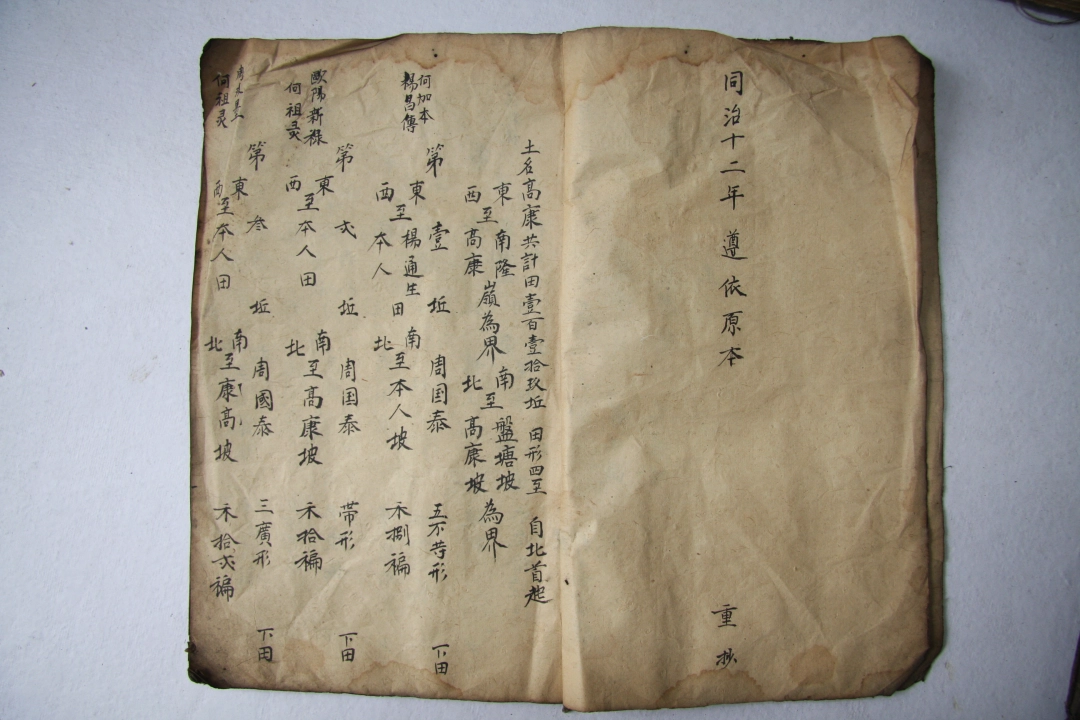 同治十二年 遵依原本 重抄
土名高康共計田壹百壹拾玖坵 田形四至 自北首起
東西至南隆嶺為界 高康 南北至盤塘坡 高康坡 為界
何加本
楊昌傳
第壹坵 周国泰 五不等形 下田
東西至楊通生田 本人 南北至本人坡 禾捌褊
歐陽新祿
何祖灵
第弍坵 周国泰 帶形 下田
東西至本人田 南北至高康坡 禾拾褊
何祖灵
第叁坵 周國泰 三廣形 下田
東西至本人田 南北至康高坡 禾拾弍褊